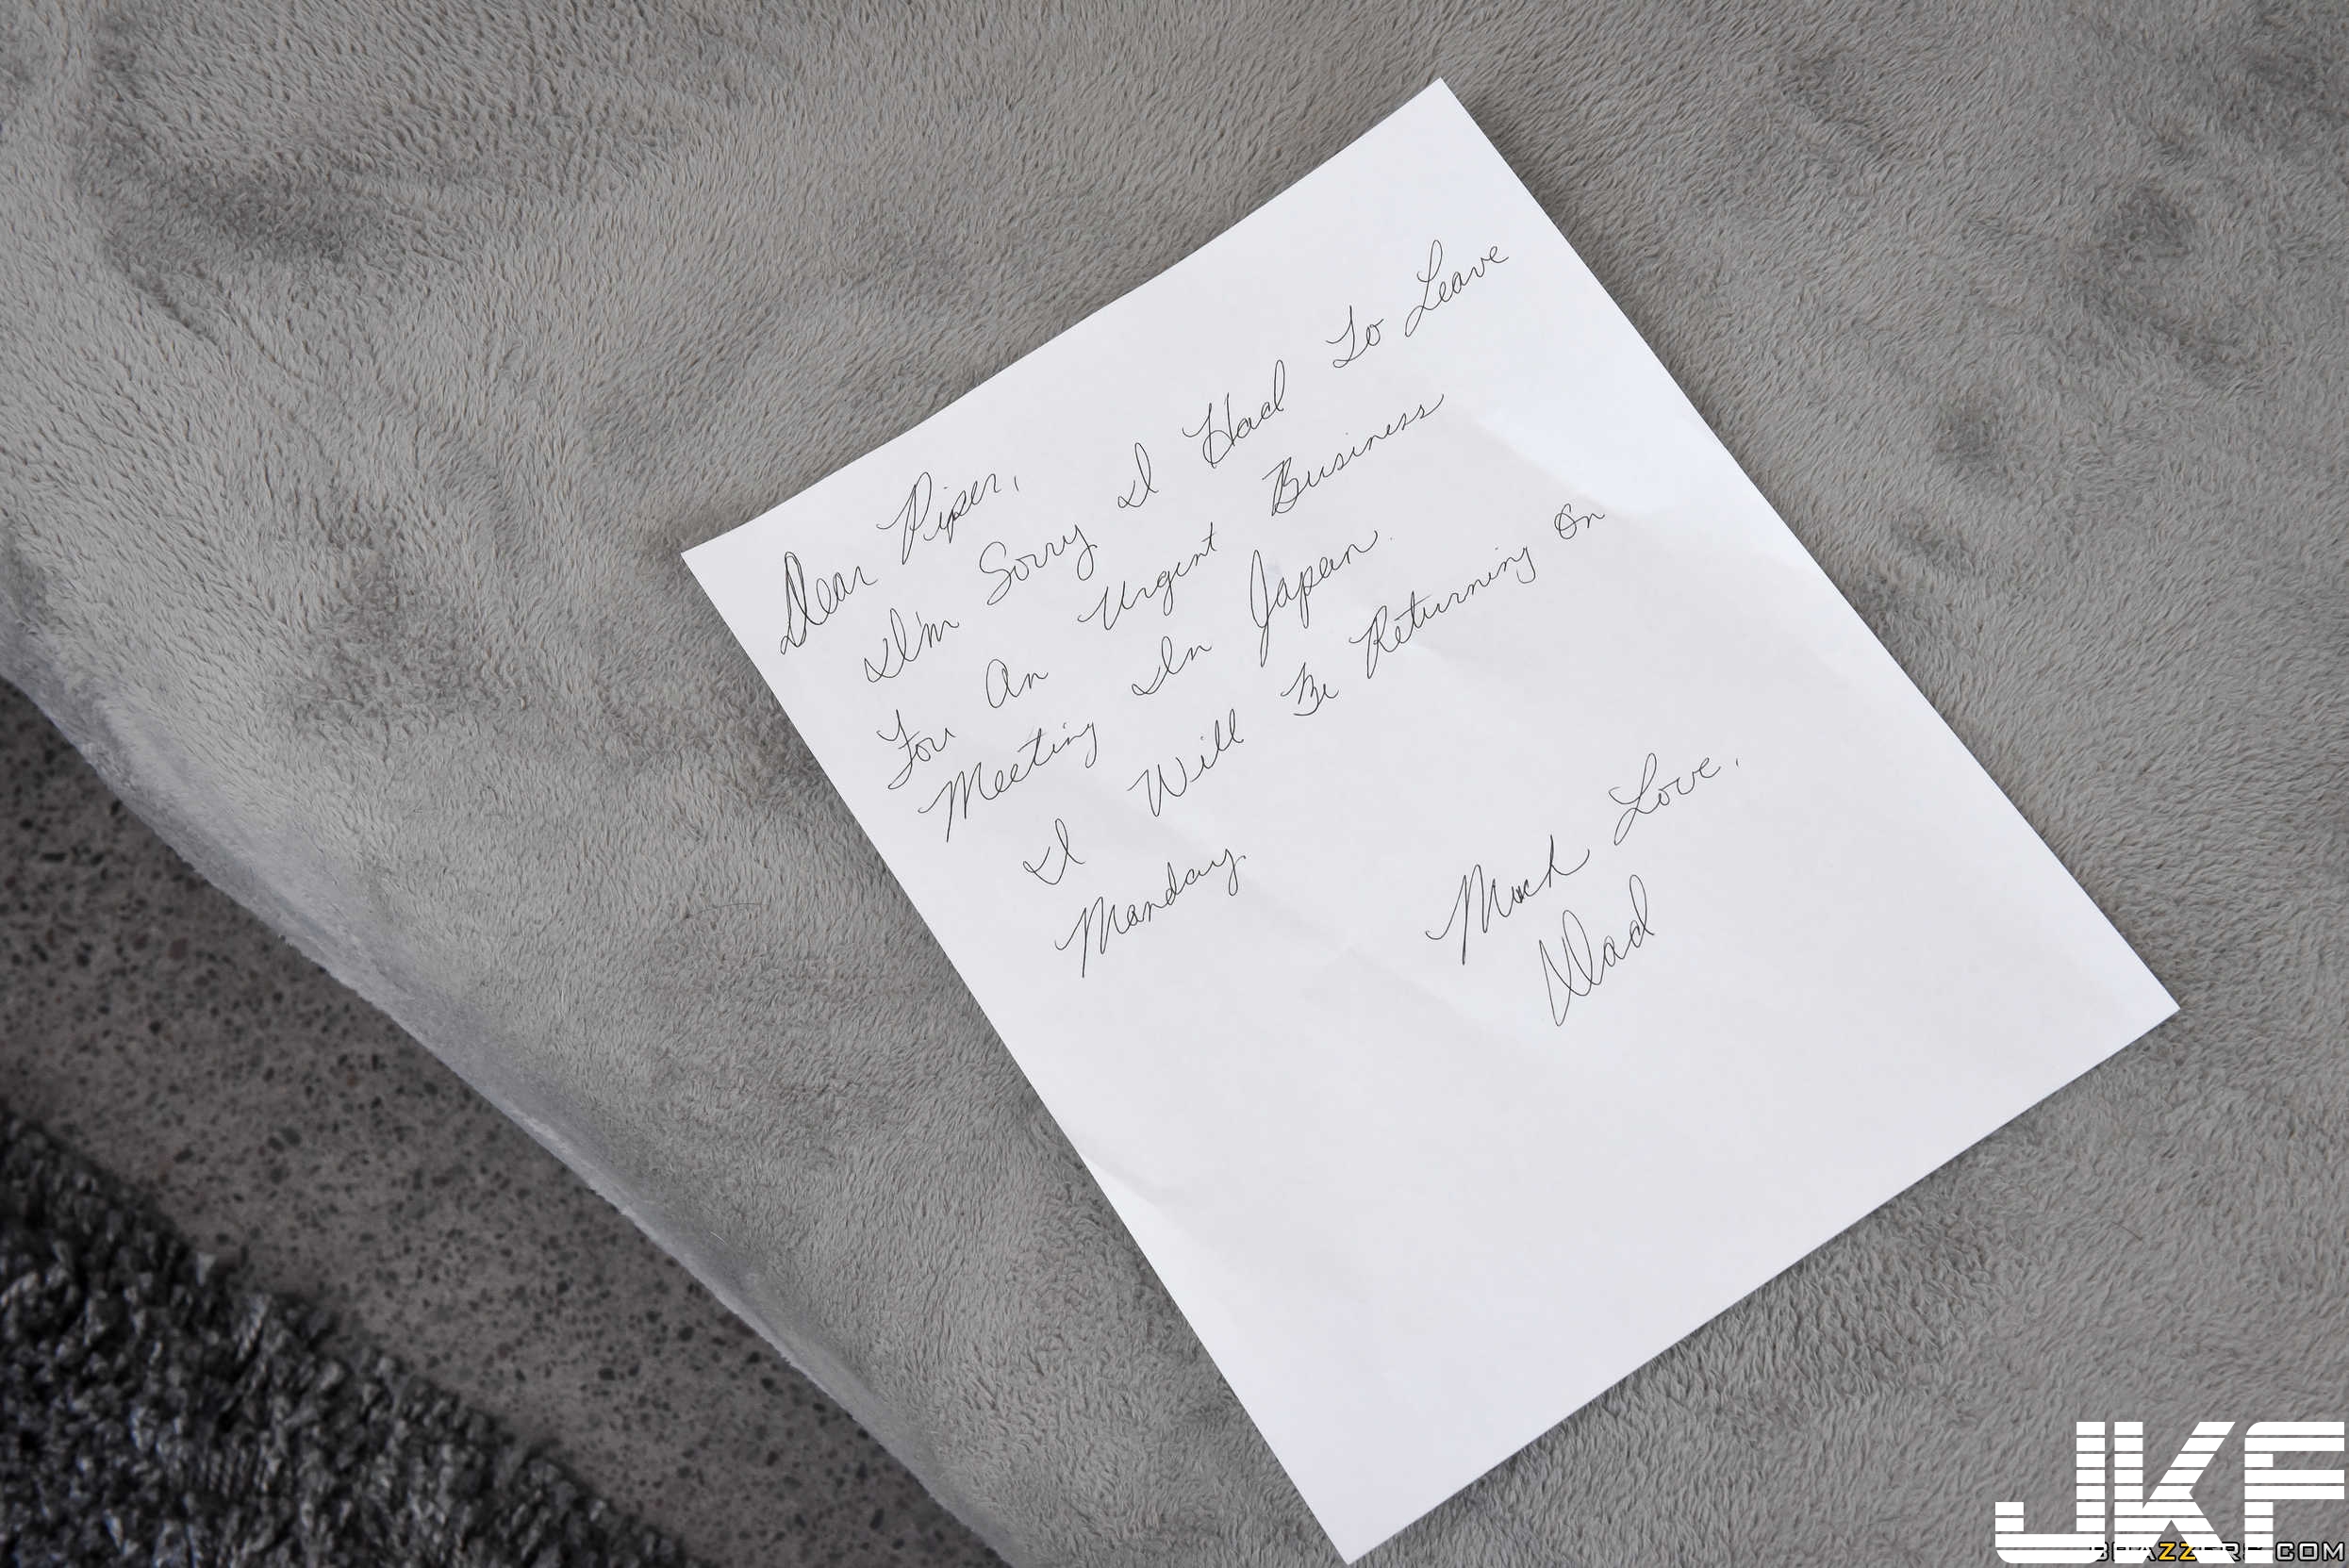 Dear Piper,
I'm Sorry I Had To Leave
For An Urgent Business
Meeting In Japan.
I Will Be Returning On
Monday
Much Love,
Dad
JKF
BRAZZERS.COM